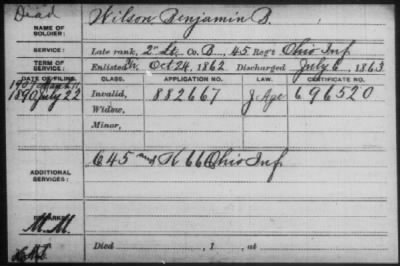 Dead
NAME OF SOLDIER: Wilson Benjamin B.
SERVICE: Late rank, 2" Lt, Co. B, 45 Reg't Ohio Inf
TERM OF SERVICE: Enlisted Oct 24, 1862 Discharged July 6, 1863
DATE OF FILING. CLASS. APPLICATION NO. LAW. CERTIFICATE NO.
1907
1890 July 22 Invalid, 882667 J Age 696520
Widow,
Minor,
ADDITIONAL SERVICES: C 45 and K 66 Ohio Inf
REMARKS:
M.M.
Died , 1 , at